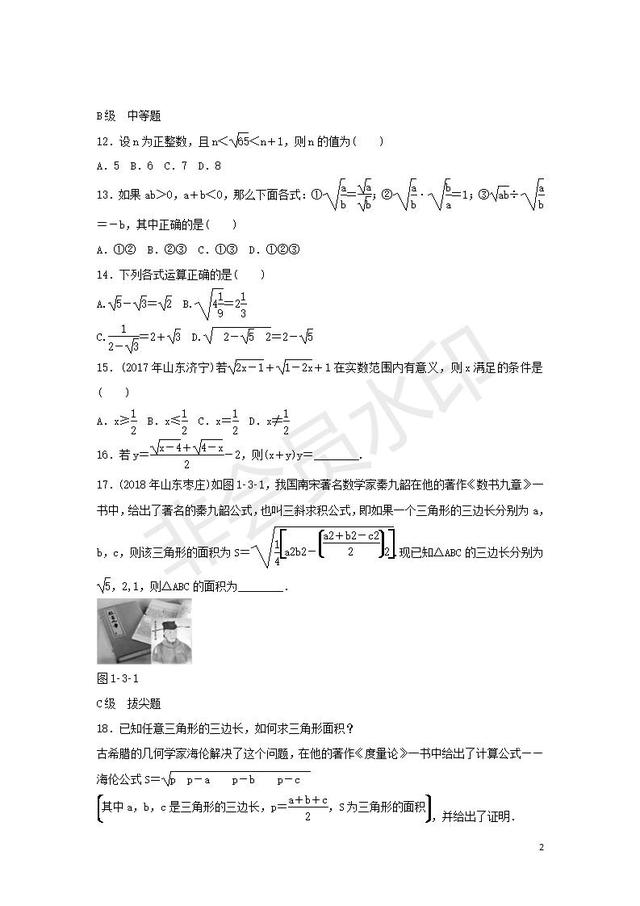 B级　中等题
12．设n为正整数，且n＜√65＜n＋1，则n的值为(　　)
A．5　B．6　C．7　D．8
13．如果ab＞0，a＋b＜0，那么下面各式：①√(a/b)＝√a/√b；②√(a/b)·√(b/a)＝1；③√ab÷√(a/b)
＝－b，其中正确的是(　　)
A．①②　B．②③　C．①③　D．①②③
14．下列各式运算正确的是(　　)
A.√5－√3＝√2　B.√(4 1/9)＝2 1/3
C.1/(2－√3)＝2＋√3　D.√(2－√5 2)＝2－√5
15．(2017年山东济宁)若√(2x－1)＋√(1－2x)＋1在实数范围内有意义，则x满足的条件是
(　　)
A．x≥1/2　B．x≤1/2　C．x＝1/2　D．x≠1/2
16．若y＝(√(x－4)＋√(4－x))/2－2，则(x＋y)y＝________.
17．(2018年山东枣庄)如图1-3-1，我国南宋著名数学家秦九韶在他的著作《数书九章》一
书中，给出了著名的秦九韶公式，也叫三斜求积公式，即如果一个三角形的三边长分别为a，
b，c，则该三角形的面积为S＝√(1/4[a2b2－((a2＋b2－c2)/2)2]).现已知△ABC的三边长分别为
√5，2,1，则△ABC的面积为________.
图1-3-1
C级　拔尖题
18．已知任意三角形的三边长，如何求三角形面积？
古希腊的几何学家海伦解决了这个问题，在他的著作《度量论》一书中给出了计算公式——
海伦公式S＝√(p　p－a　p－b　p－c)
(其中a，b，c是三角形的三边长，p＝(a＋b＋c)/2，S为三角形的面积)，并给出了证明．
2
非会员水印